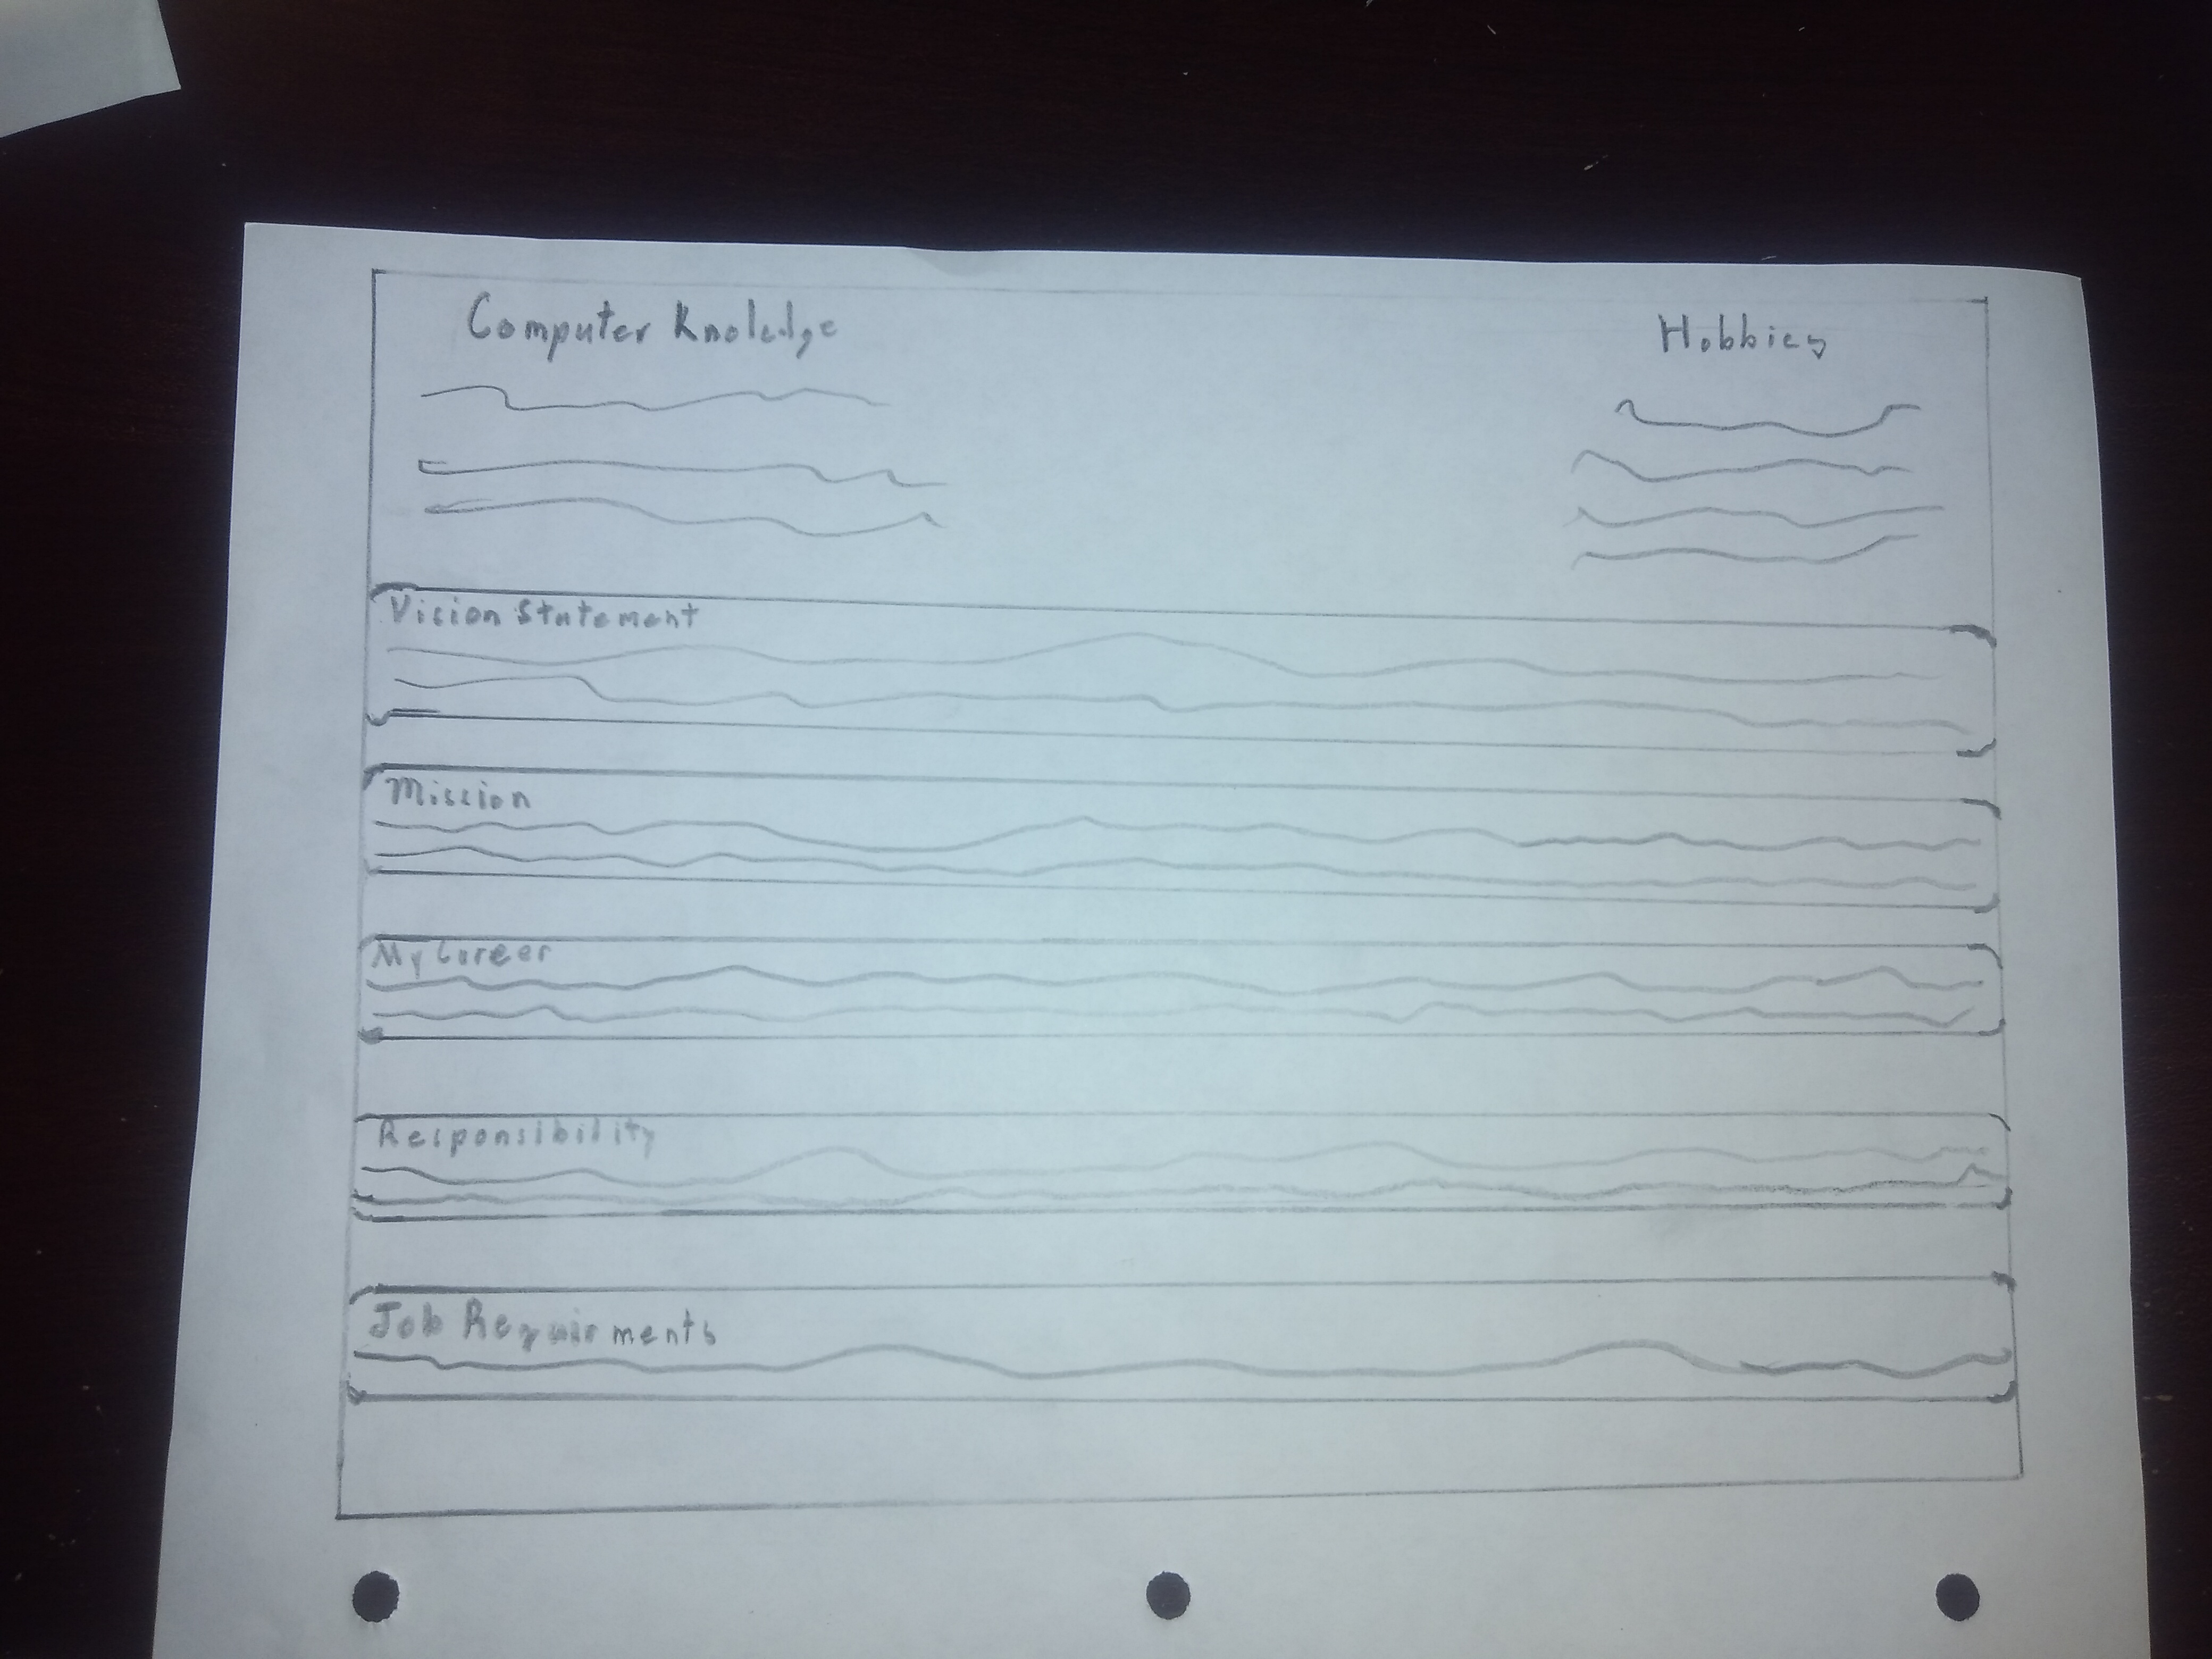 Computer Knoledge
Hobbies
Vision Statement
Mission
My Career
Responsibility
Job Requirments